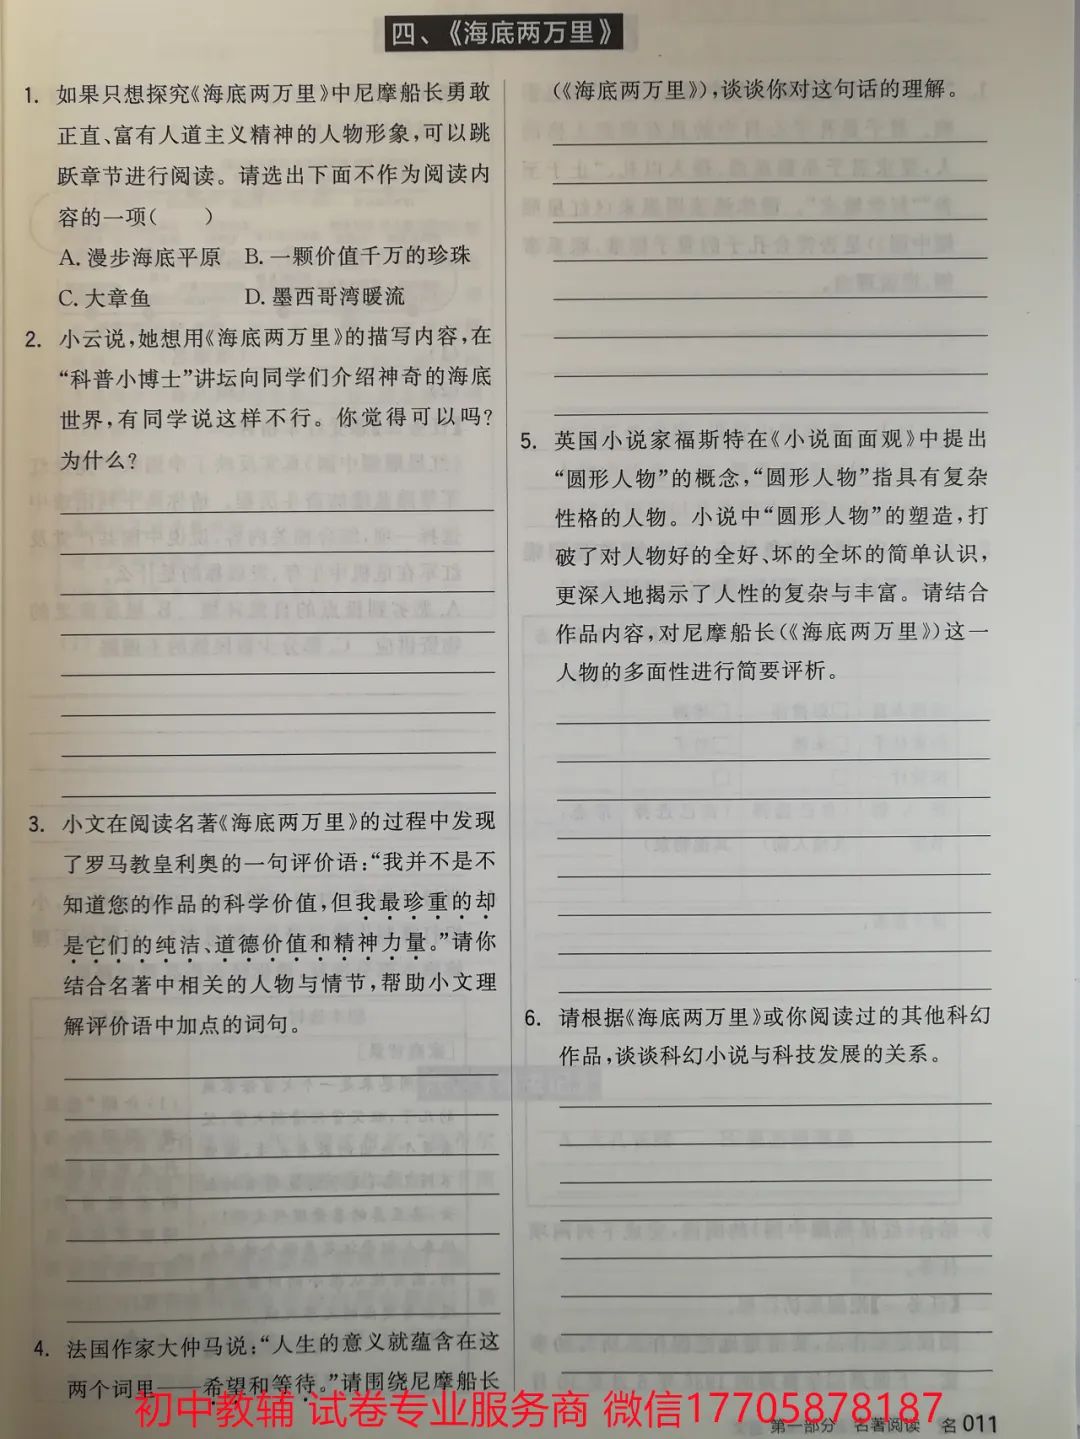 四、《海底两万里》
1. 如果只想探究《海底两万里》中尼摩船长勇敢
正直、富有人道主义精神的人物形象,可以跳
跃章节进行阅读。请选出下面不作为阅读内
容的一项(　　)
A. 漫步海底平原 B. 一颗价值千万的珍珠
C. 大章鱼 D. 墨西哥湾暖流
2. 小云说,她想用《海底两万里》的描写内容,在
“科普小博士”讲坛向同学们介绍神奇的海底
世界,有同学说这样不行。你觉得可以吗?
为什么?
3. 小文在阅读名著《海底两万里》的过程中发现
了罗马教皇利奥的一句评价语:“我并不是不
知道您的作品的科学价值,但我最珍重的却
是它们的纯洁、道德价值和精神力量。”请你
结合名著中相关的人物与情节,帮助小文理
解评价语中加点的词句。
4. 法国作家大仲马说:“人生的意义就蕴含在这
两个词里——希望和等待。”请围绕尼摩船长
(《海底两万里》),谈谈你对这句话的理解。
5. 英国小说家福斯特在《小说面面观》中提出
“圆形人物”的概念,“圆形人物”指具有复杂
性格的人物。小说中“圆形人物”的塑造,打
破了对人物好的全好、坏的全坏的简单认识,
更深入地揭示了人性的复杂与丰富。请结合
作品内容,对尼摩船长(《海底两万里》)这一
人物的多面性进行简要评析。
6. 请根据《海底两万里》或你阅读过的其他科幻
作品,谈谈科幻小说与科技发展的关系。
初中教辅 试卷专业服务商 微信17705878187
第一部分 名著阅读 名 011